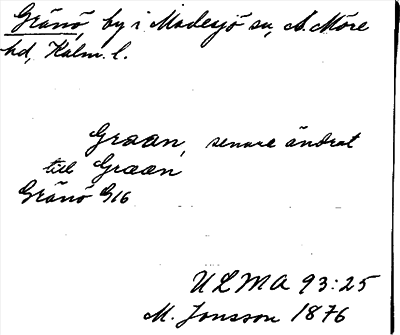 Gränö, by i Madesjö sn, S. Möre
hd, Kalm. l.
Graan, senare ändrat
till Graan
Gränö G16
ULMA 93:25
M. Jonsson 1876